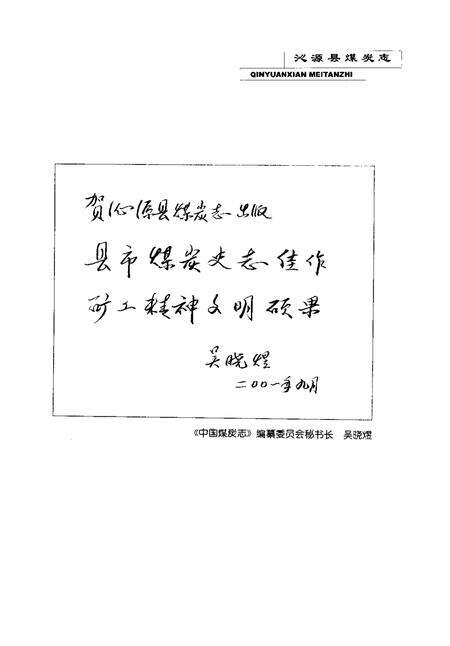 沁源县煤炭志
QINYUANXIAN MEITANZHI
贺沁源县煤炭志出版
县市煤炭史志佳作
矿工精神文明硕果
吴晓煜
二〇〇一年九月
《中国煤炭志》编纂委员会秘书长 吴晓煜